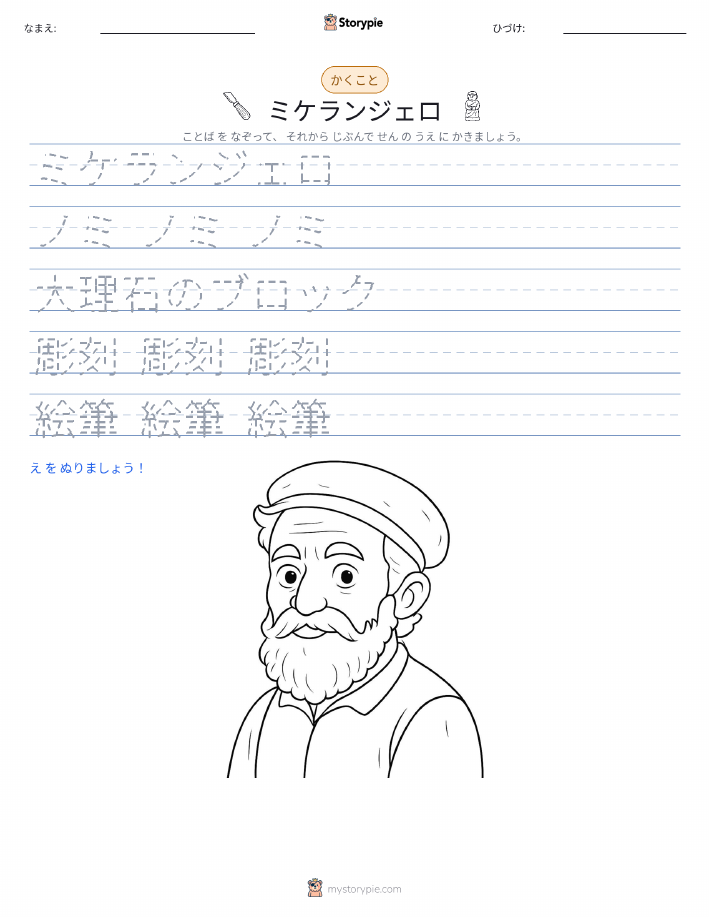 なまえ:
Storypie
ひづけ:
かくこと
ミケランジェロ
ことば を なぞって、 それから じぶんで せん の うえ に かきましょう。
ミケランジェロ
ノミ ノミ ノミ
大理石のブロック
彫刻 彫刻 彫刻
絵筆 絵筆 絵筆
え を ぬりましょう！
mystorypie.com